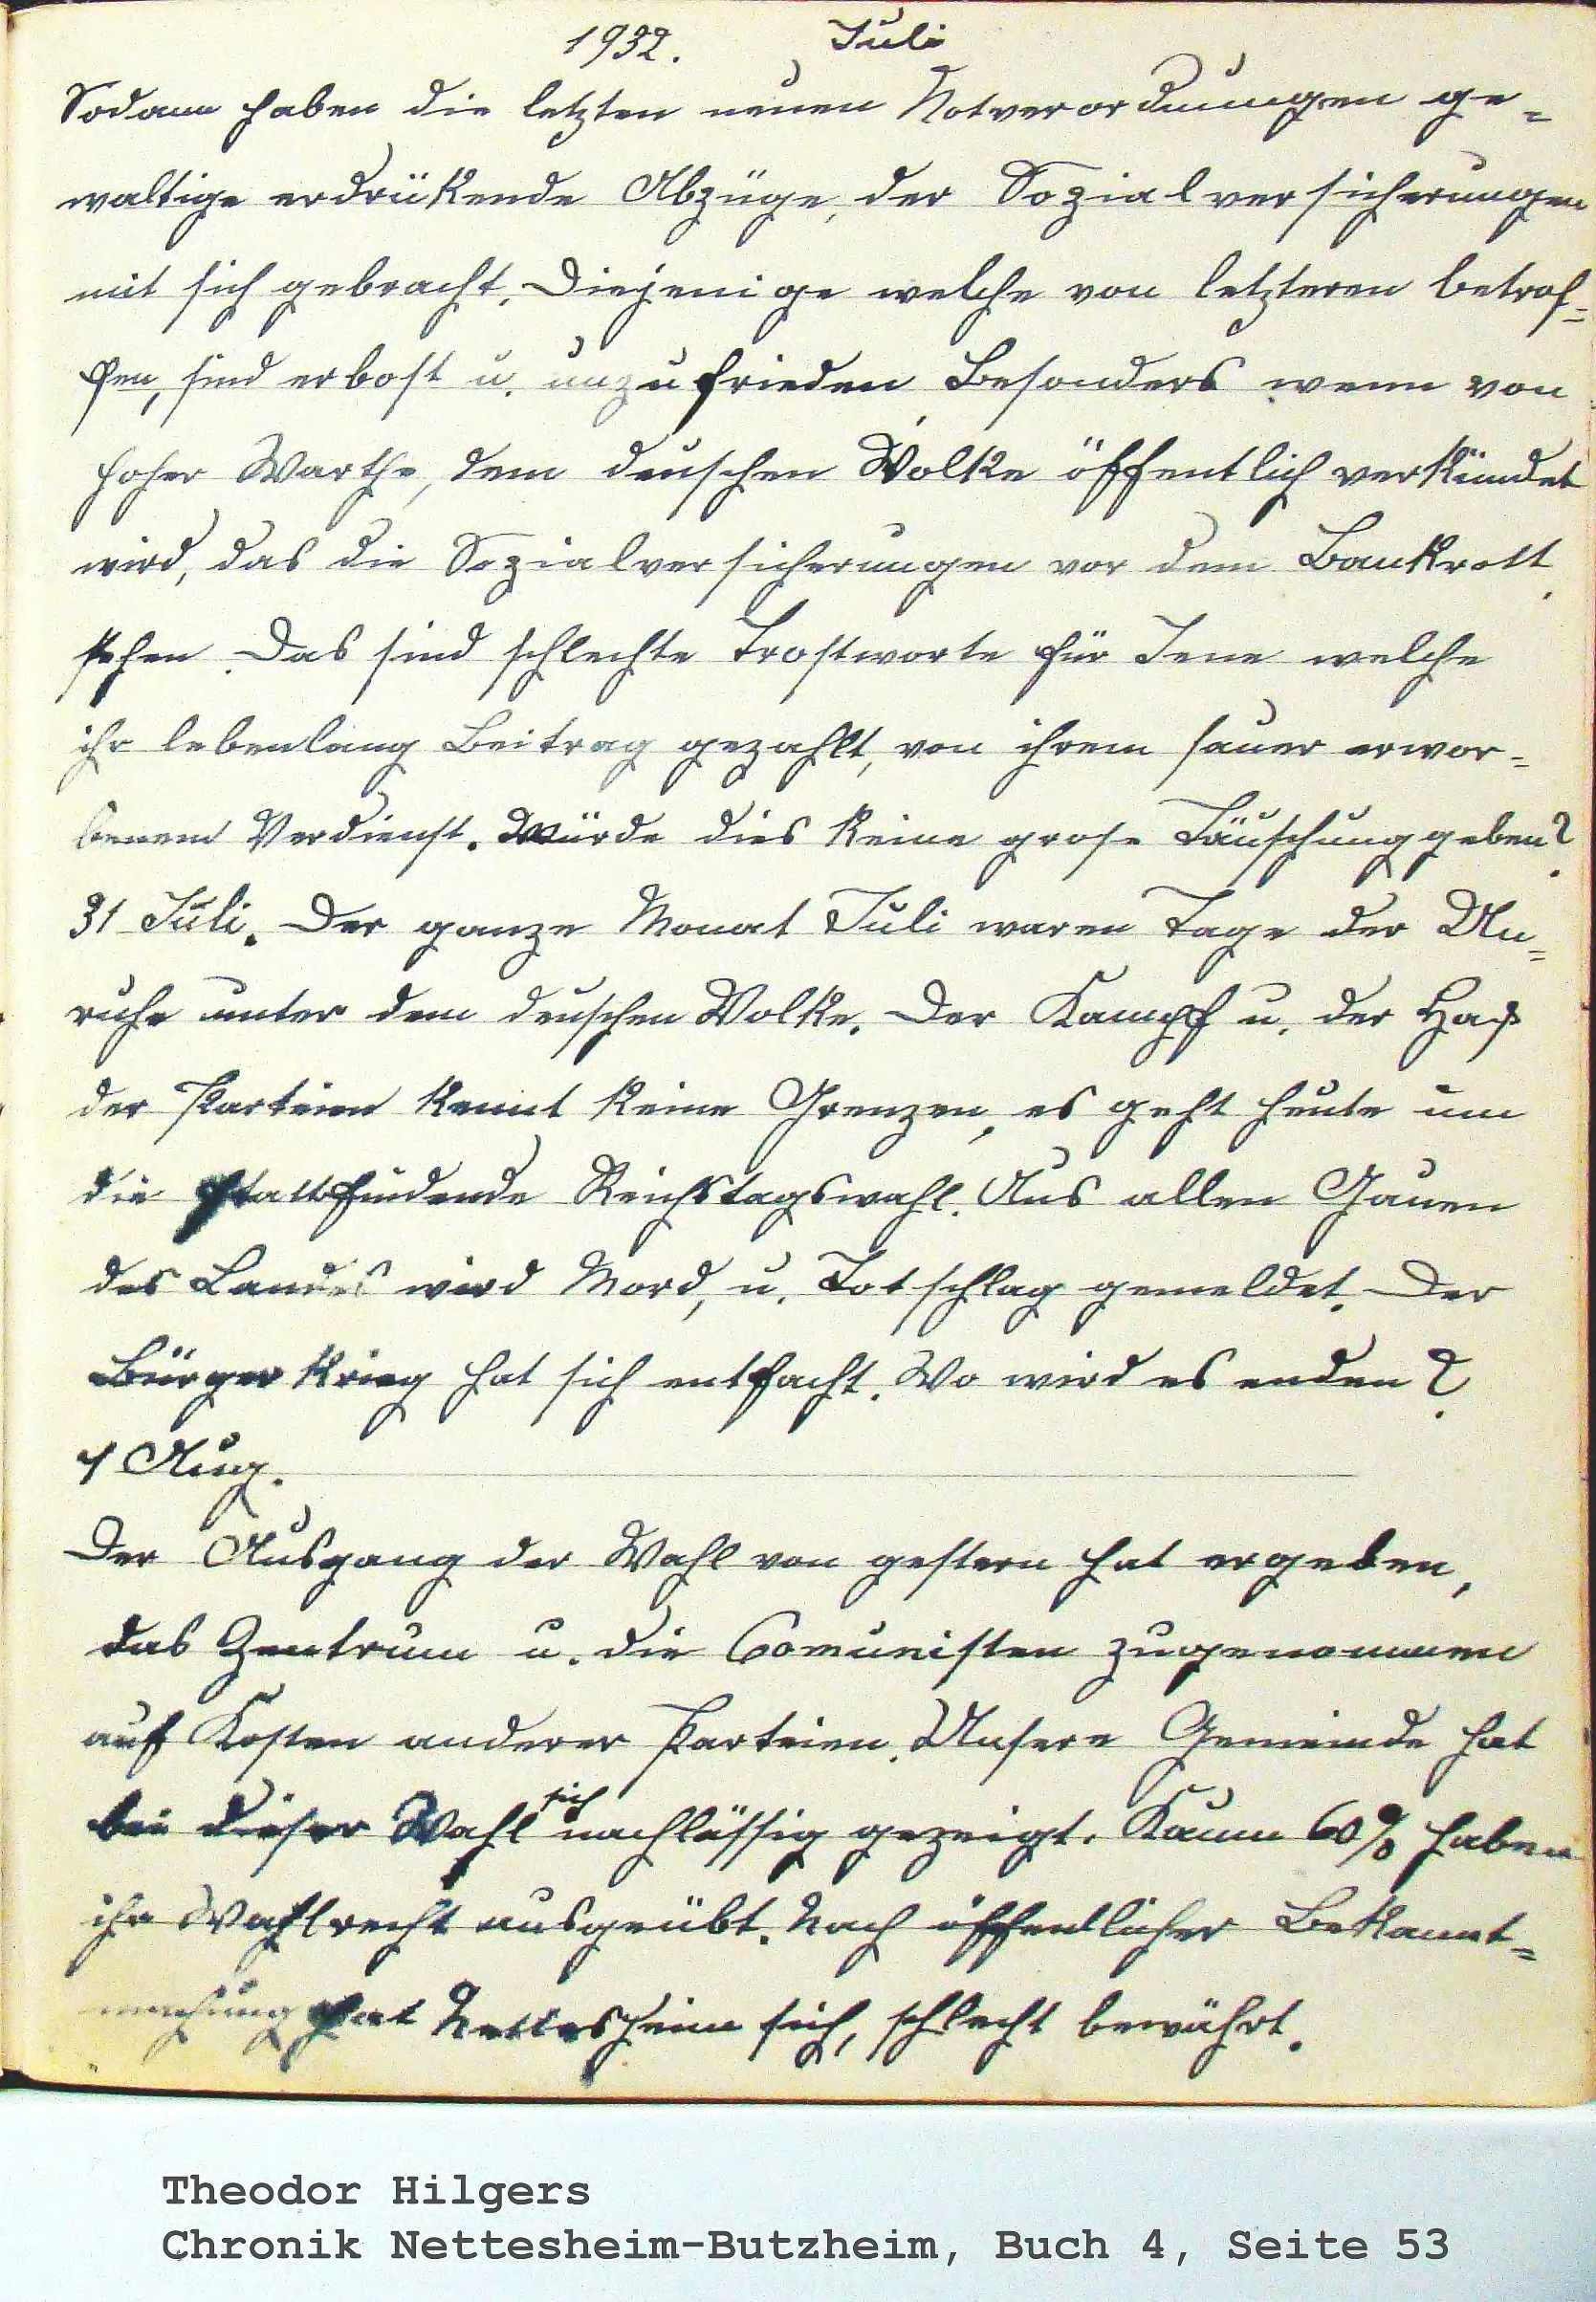 1932. Juli
Sodann haben die letzten neuen Notverordnungen ge-
waltige erdrükende Abzüge, der Sozialversicherungen
mit sich gebracht. Diejenige welche von letzteren betrof-
fen, sind erbost u. unzufrieden Besonders wenn von
hoher Warthe, dem deuschen Volke öffentlich verkündet
wird, das die Sozialversicherungen vor dem Bankrott
stehen. Das sind schlechte Trostworte für Jene welche
ihr lebenlang Beitrag gezahlt, von ihrem sauer erwor-
benem Verdienst. Würde dies keine grose Täuschung geben?
31 Juli. Der ganze Monat Juli waren Tage der Un-
ruhe unter dem deuschen Volke. Der Kampf u. der Haß
der Parteien kennt keine Grenzen, es geht heute um
die stattfindende Reichstagswahl. Aus allen Gauen
des Landes wird Mord, u. Totschlag gemeldet. Der
Bürgerkrieg hat sich entfacht. Wo wird es enden?
1 Aug.
Der Ausgang der Wahl von gestern hat ergeben,
das Zentrum u. die Comunisten zugenommen
auf Kosten anderer Parteien. Unsere Gemeinde hat
bei dieser Wahl sich nachlässig gezeigt. Kaum 60% haben
ihr Wahlrecht ausgeübt. Nach öffentlicher Bekannt-
machung hat Nettesheim sich, schlecht bewährt.
Theodor Hilgers
Chronik Nettesheim-Butzheim, Buch 4, Seite 53